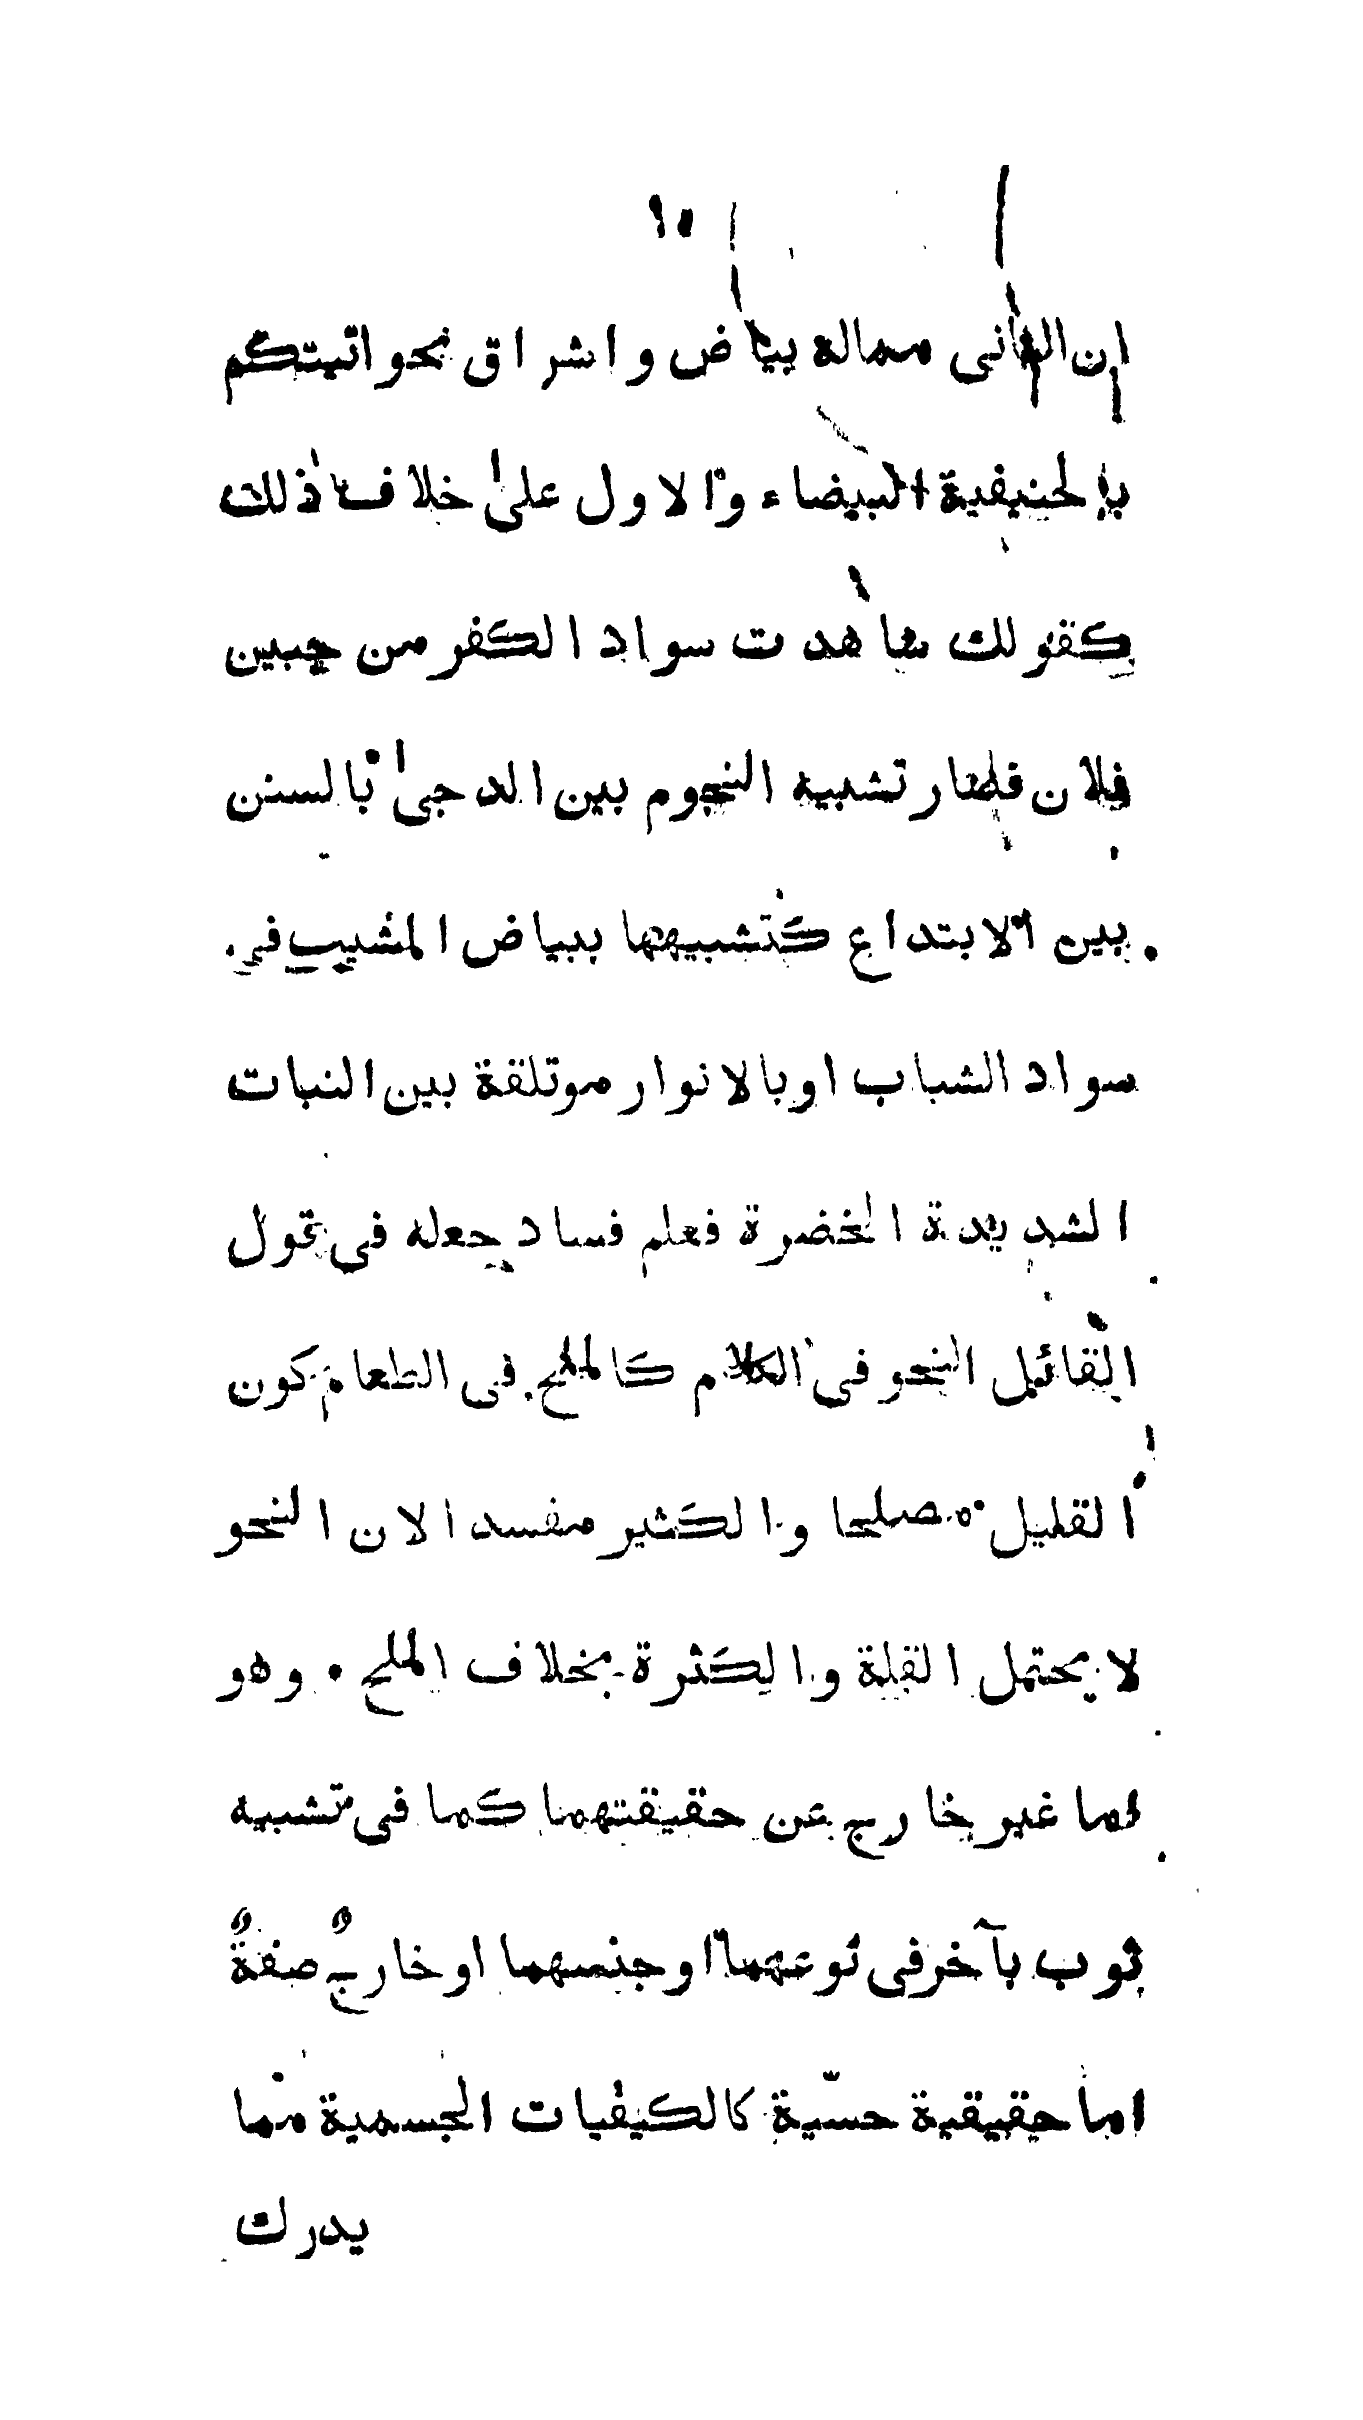 ١٥
ان الثانى مماله بياض واشراق نحو اتيتكم
بالحنيفية البيضاء والاول على خلاف ذلك
كقولك شاهدت سواد الكفر من جبين
فلان فصار تشبيه النجوم بين الدجى بالسنن
بين الابتداع كتشبيهها ببياض المشيب في
سواد الشباب اوبالانوار موتلقة بين النبات
الشديدة الخضرة فعلم فساد جعله فى قول
القائل النحو فى الكلام كالملح فى الطعام كون
القليل مصلحا والكثير مفسدا لان النحو
لا يحتمل القلة والكثرة بخلاف الملح ٠ وهو
اما غير خارج عن حقيقتهما كما فى تشبيه
ثوب بآخرفى نوعهما اوجنسهما اوخارجٌ صفةٌ
اما حقيقية حسّية كالكيفيات الجسمية مما
يدرك